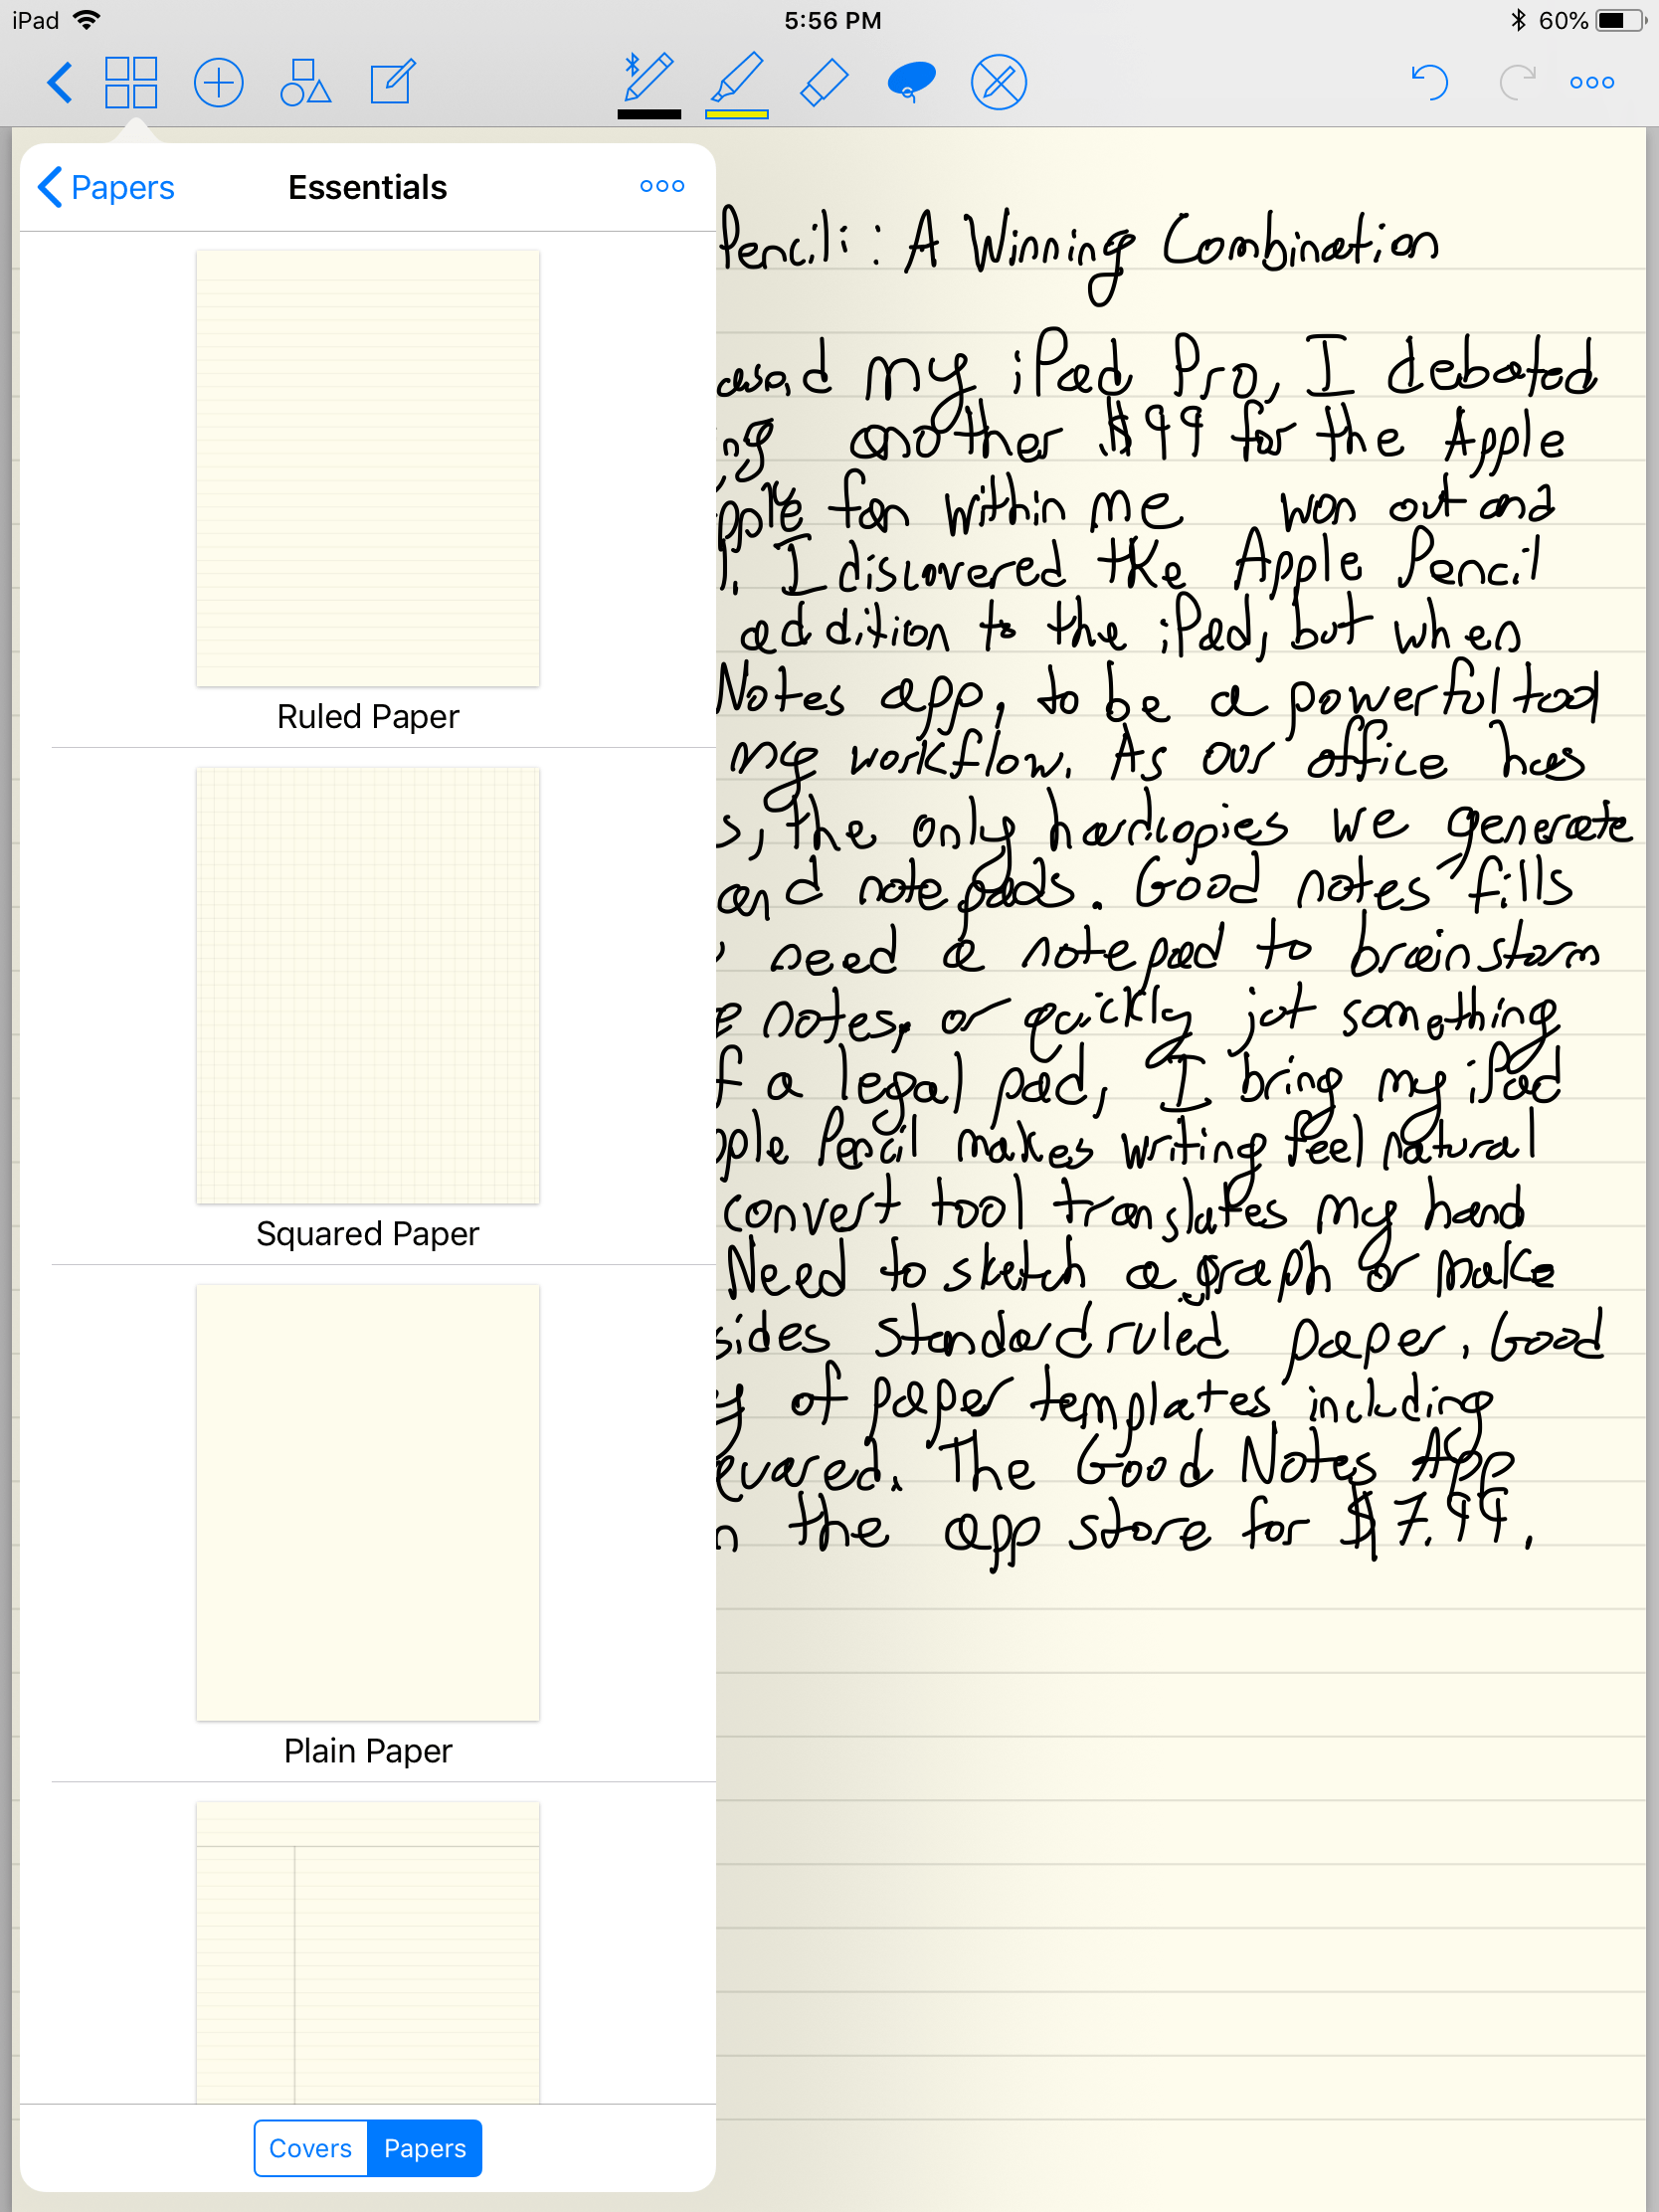 iPad
5:56 PM
60%
Papers
Essentials
Ruled Paper
Squared Paper
Plain Paper
Covers
Papers
Pencil: A Winning Combination
ased my iPad Pro, I debated
ng another $99 for the Apple
pple fan within me won out and
l. I discovered the Apple Pencil
addition to the iPad, but when
Notes app, to be a powerful tool
my workflow. As our office has
s, the only hardcopies we generate
and notepads. Good notes fills
need a notepad to brainstorm
e notes, or quickly jot something
f a legal pad, I bring my iPad
pple Pencil makes writing feel natural
convert tool translates my hand
Need to sketch a graph or make
sides standard ruled paper, Good
y of paper templates including
quared. The Good Notes App
n the app store for $7.99.